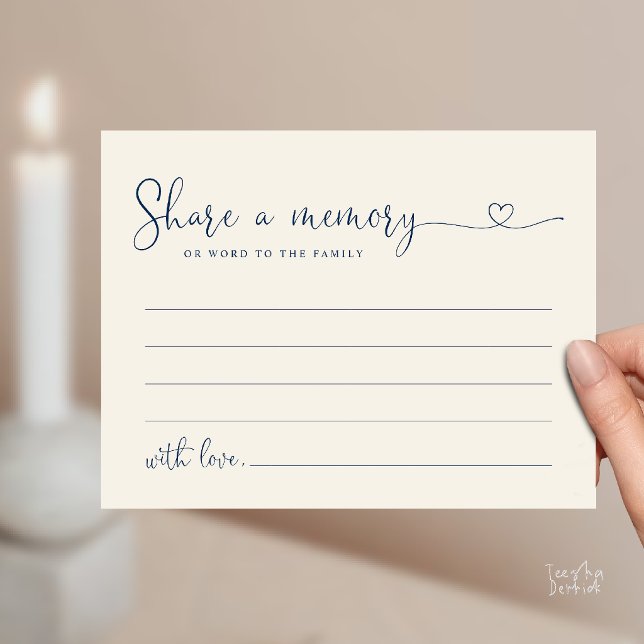 Share a memory
OR WORD TO THE FAMILY
with love,
Teesha
Derrick